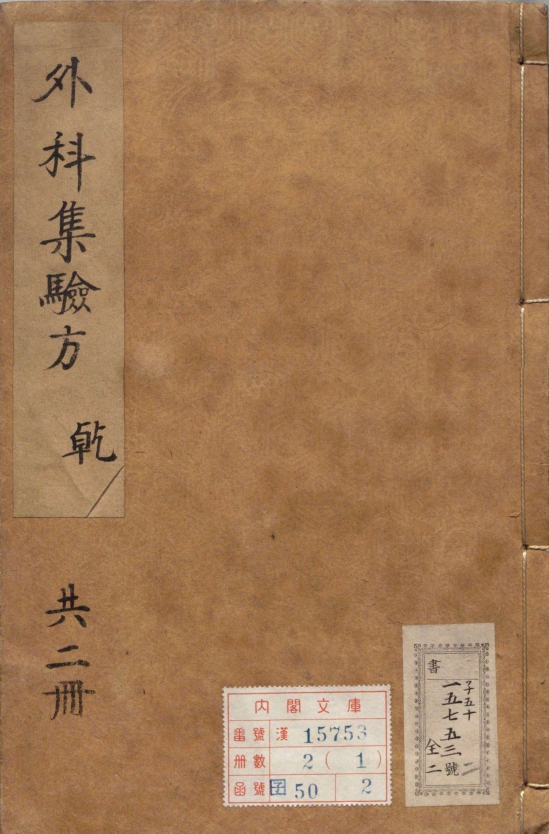 外科集驗方 乾
共二冊
內閣文庫
番號 漢 15753
冊數 2(1)
函號 子 50 2
書
子五十
一五七五三號
全二